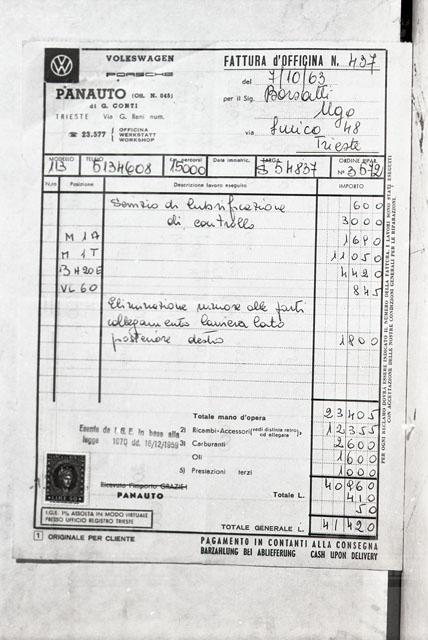 VOLKSWAGEN
PORSCHE
PANAUTO (OR. N. 045)
di G. CONTI
TRIESTE Via G. Reni num.
☎ 23.577
OFFICINA
WERKSTATT
WORKSHOP
FATTURA d'OFFICINA N. 437
del 7/10/63
per il Sig. Borsatti
Ugo
via 48
Trieste
MODELLO 113
TELAIO 5134608
Km. percorsi 15000
Data immatric.
TARGA 54837
ORDINE RIPAR. N° 3572
N.ro Posizione Descrizione lavoro eseguito IMPORTO
Servizio di lubrificazione 600
di controllo 3000
M 1A 1690
M 1T 11050
BH20E 4420
VL 60 845
Eliminazione rumore alle parti
collegamento lamiera lato
posteriore destro 1800
Totale mano d'opera 23405
2) Ricambi-Accessori (vedi distinta retro od allegare 12355
3) Carburanti 2600
Oli 1600
5) Prestazioni terzi 1000
Esente da I.G.E. in base alla
legge 1070 dd. 16/12/1959
Totale L. 40960
410
50
Ricevuto l'importo GRAZIE!
PANAUTO
I.G.E. 1% ASSOLTA IN MODO VIRTUALE
PRESSO UFFICIO REGISTRO TRIESTE
TOTALE GENERALE L. 41420
1 ORIGINALE PER CLIENTE
PAGAMENTO IN CONTANTI ALLA CONSEGNA
BARZAHLUNG BEI ABLIEFERUNG CASH UPON DELIVERY
PER OGNI RECLAMO DOVRÀ ESSERE INDICATO IL NUMERO DELLA FATTURA. I LAVORI SONO STATI ESEGUITI
CON ACCETTAZIONE DELLE NOSTRE CONDIZIONI GENERALI PER LE RIPARAZIONI.